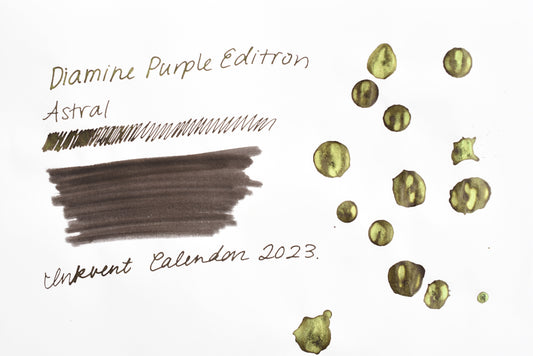 Diamine Purple Edition
Astral
Inkvent Calendar 2023.